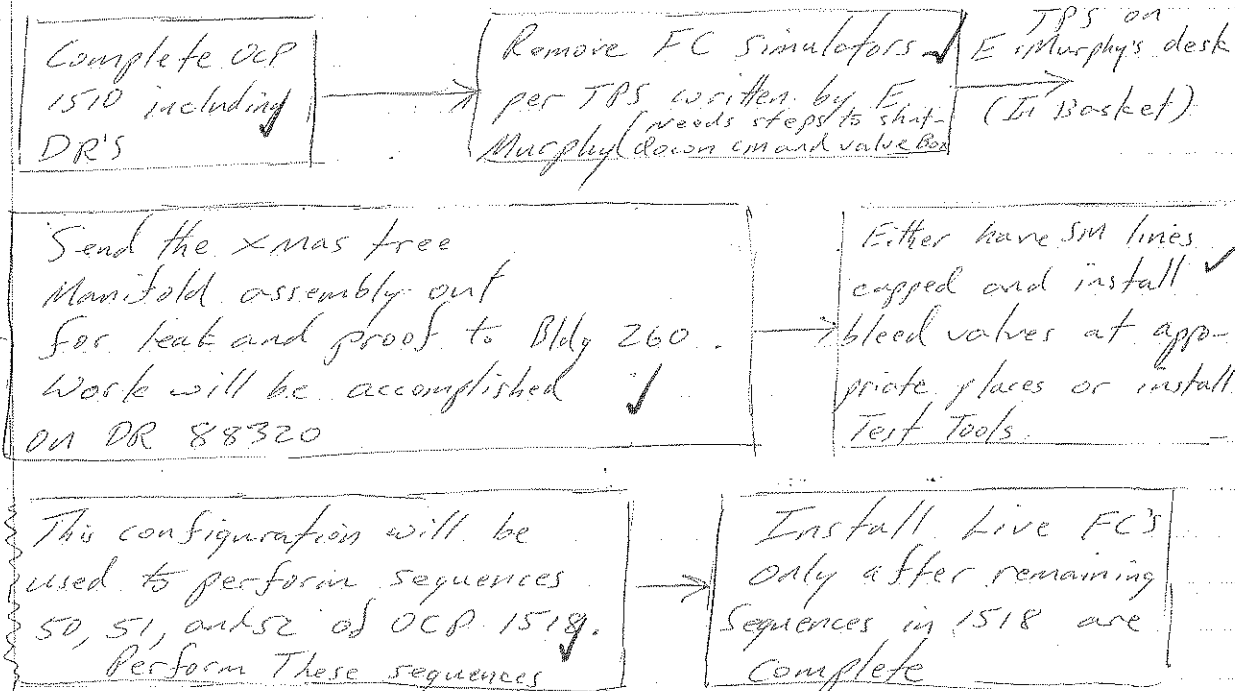 Complete OCP
1510 including
DR's
Remove FC simulators
per TPS written by E
Murphy (needs steps to shut-
down and valve Box
TPS on
E Murphy's desk
(In Basket)
Send the Xmas tree
Manifold assembly out
for leak and proof to Bldg 260.
Work will be accomplished
on DR 88320
Either have SM lines
capped and install
bleed valves at appo-
priate places or install
Test Tools.
This configuration will be
used to perform sequences
50, 51, and 52 of OCP 1518.
Perform These sequences
Install Live FC's
only after remaining
Sequences in 1518 are
Complete